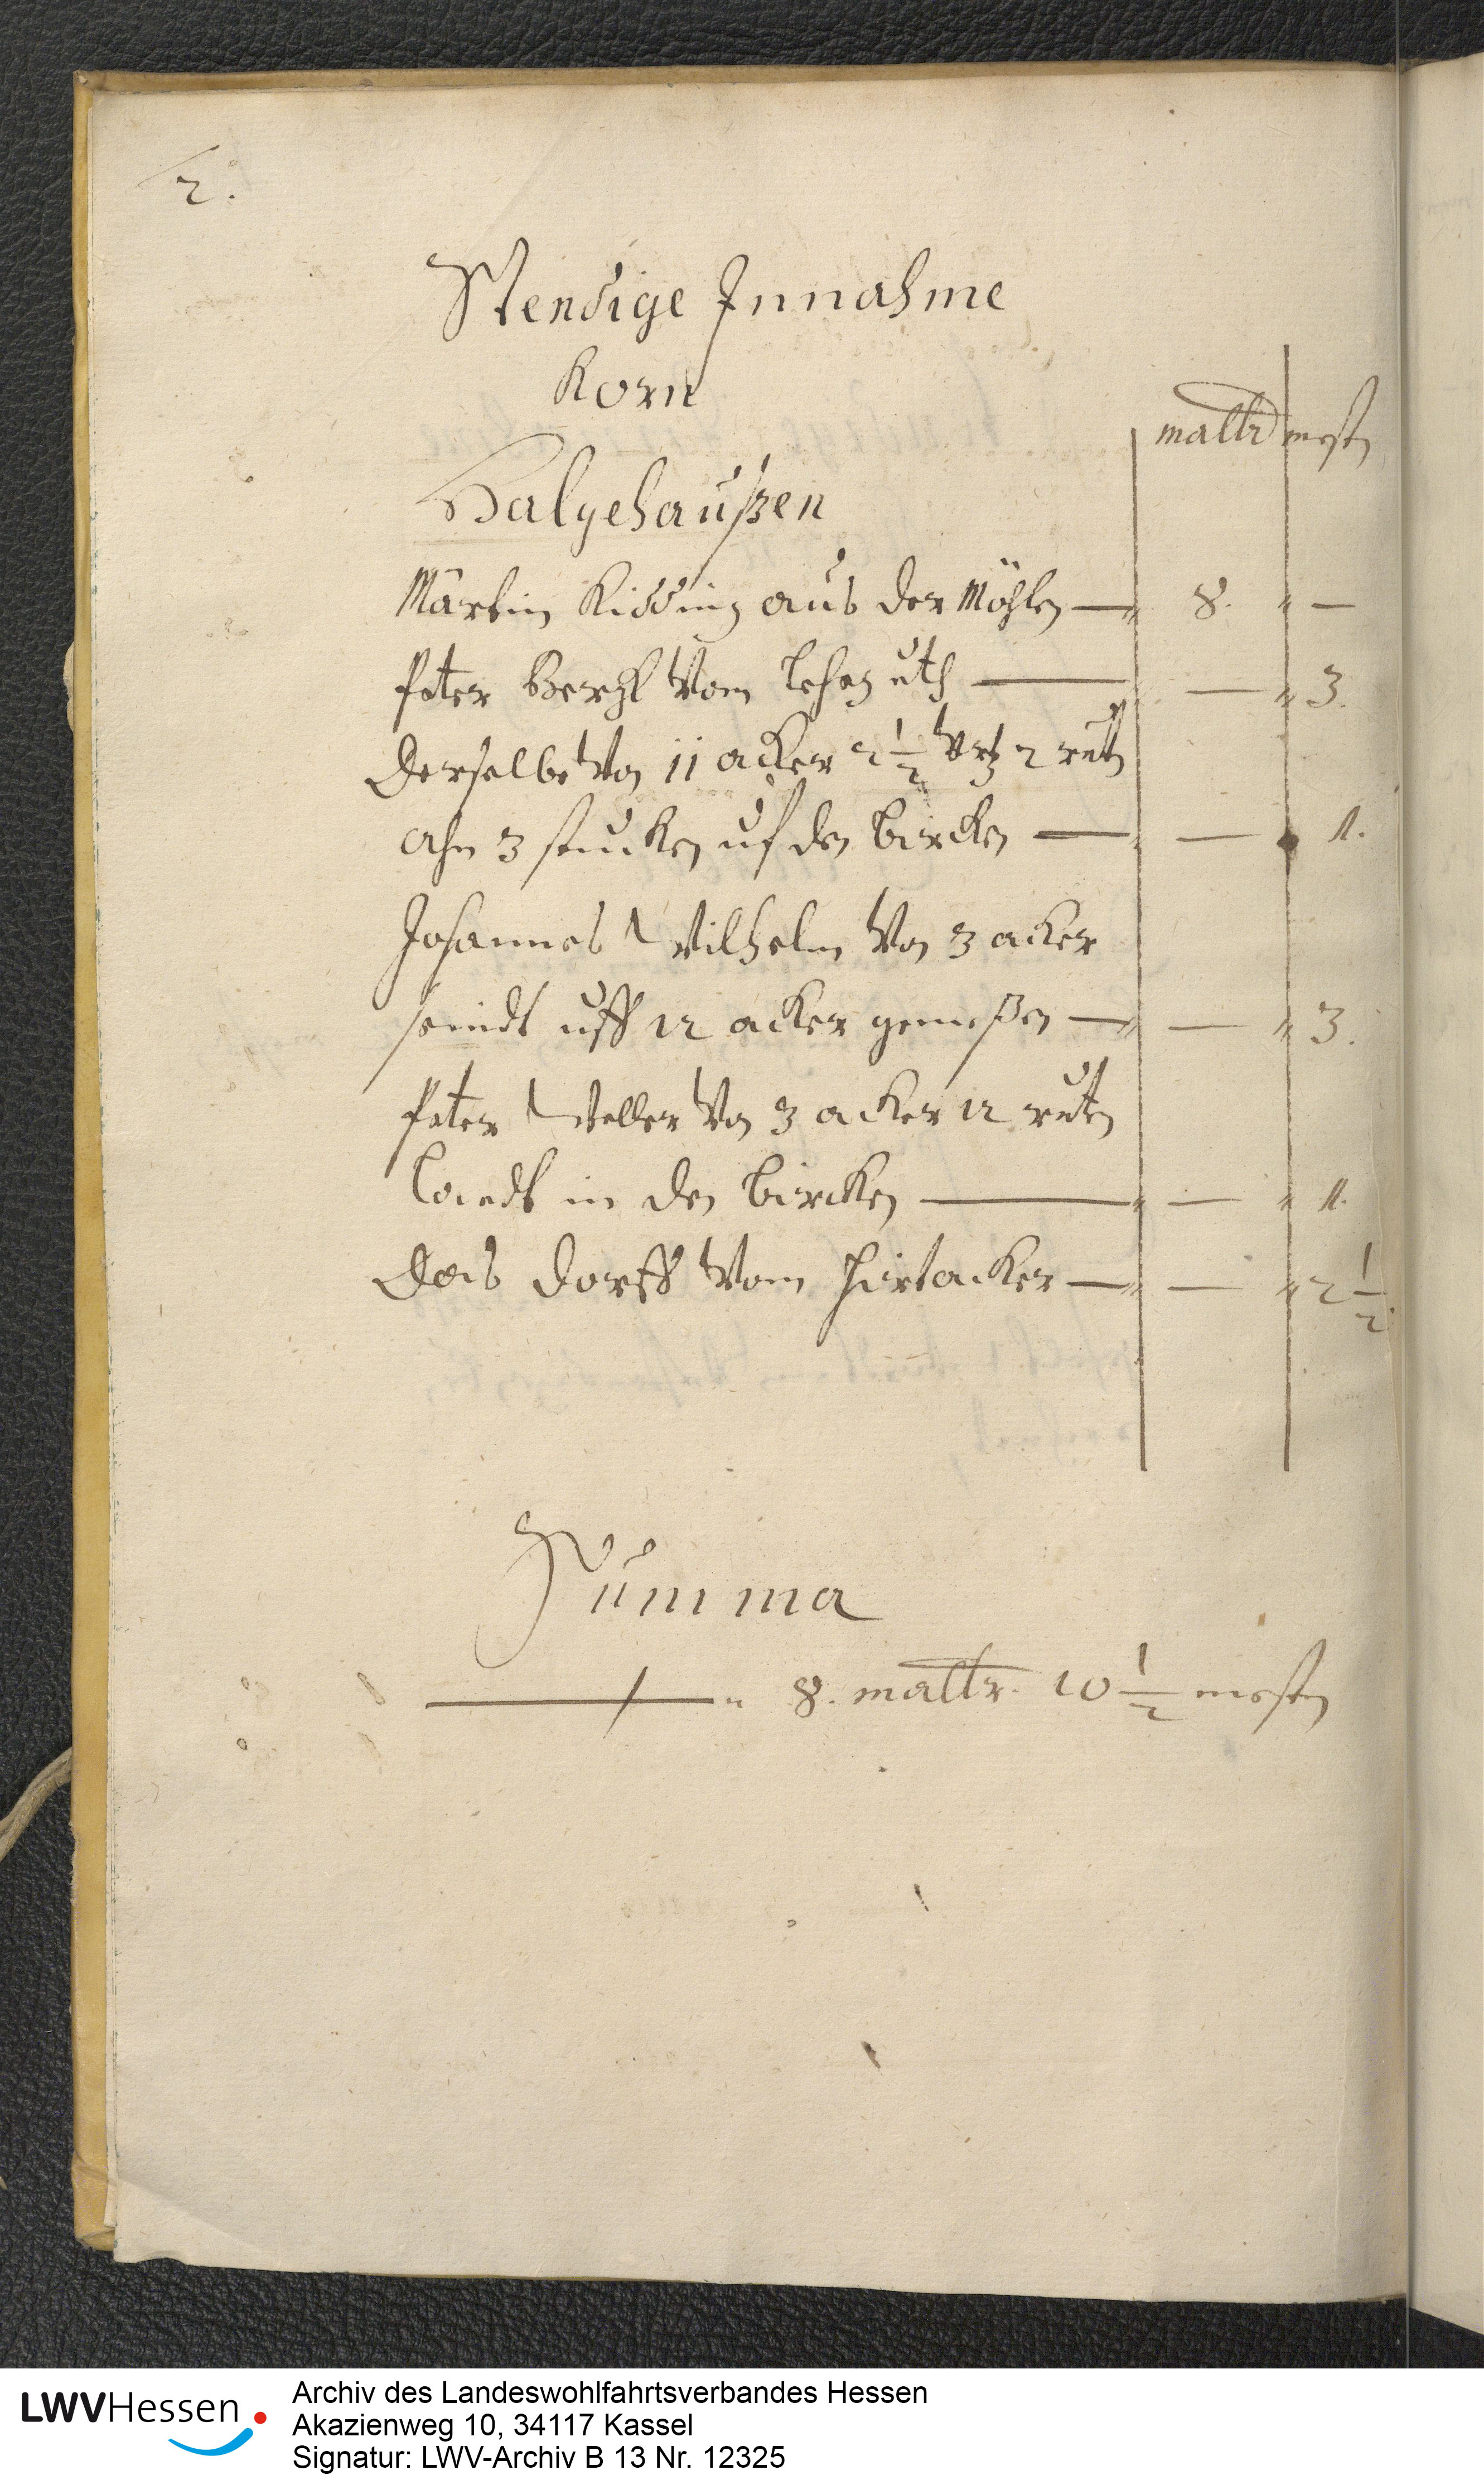 2.
Stendige Innahme
Korn
maltr mestn
Halgehaußen
Martin Kidding aus der Möhlen — 8. —
Peter vom Lehnguth — — 3.
Derselbe von 11 acker 2 1/2 2 rutn
ahn 3 stucken uf den bircken — — 1.
Johannes Wilhelm von 3 acker
seindt uff 12 acker gemeßen — — 3.
Peter Weller von 3 acker 12 rutn
Landt in den bircken — — 1.
Das dorff vom hirtacker — — 2 1/2.
Summa
— 8. maltr. 10 1/2 mestn
LWVHessen
Archiv des Landeswohlfahrtsverbandes Hessen
Akazienweg 10, 34117 Kassel
Signatur: LWV-Archiv B 13 Nr. 12325